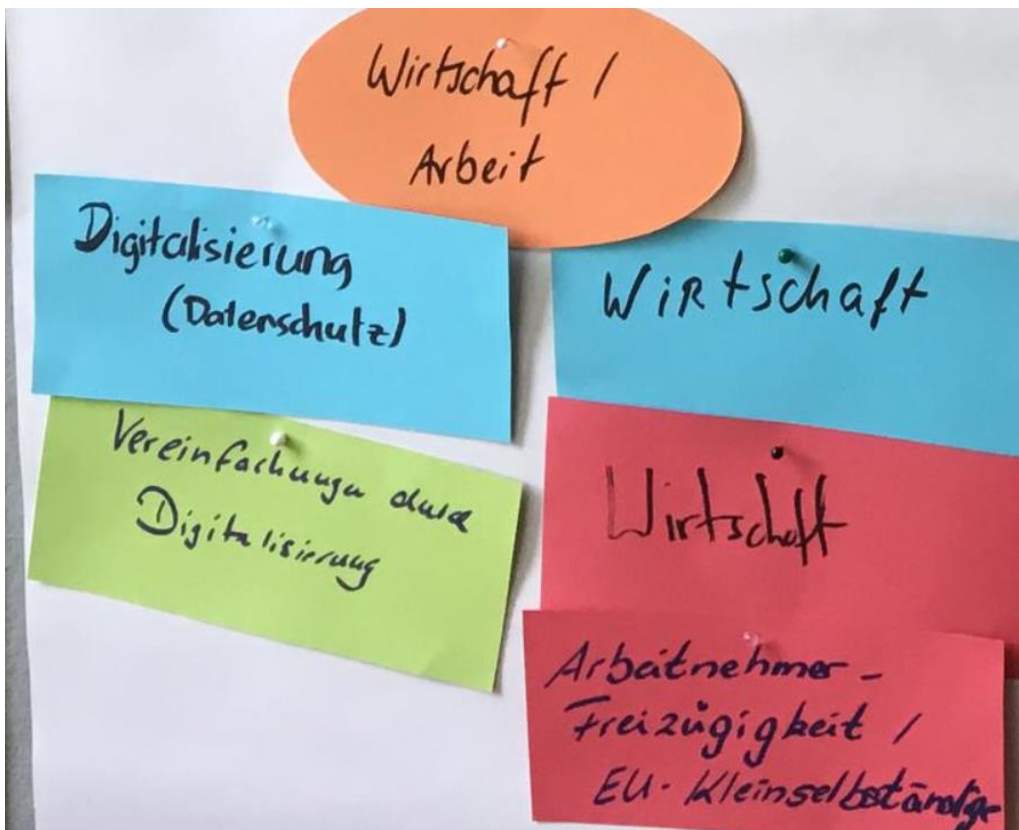 Wirtschaft /
Arbeit
Digitalisierung
(Datenschutz)
Vereinfachungen durch
Digitalisierung
Wirtschaft
Wirtschaft
Arbeitnehmer-
Freizügigkeit /
EU-Kleinselbständige